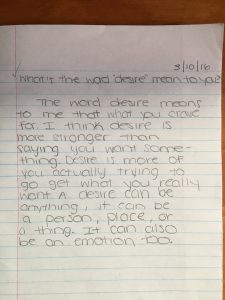 3/10/16
What's the word "desire" mean to you?
The word desire means
to me that what you crave
for. I think desire is
more stronger than
saying you want some-
thing. Desire is more of
you actually trying to
go get what you really
want. A desire can be
anything, it can be
a person, place, or
a thing. It can also
be an emotion too.